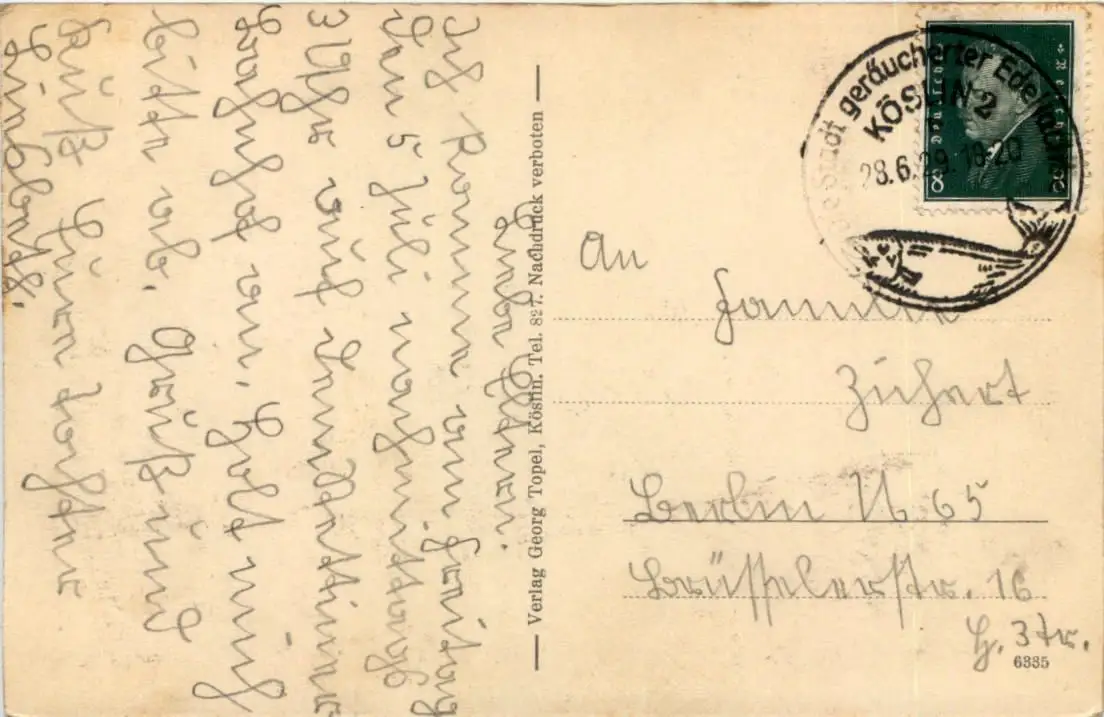 Liebe Eltern.
Ich komme am Freitag
den 5 Juli nachmittags
3 Uhr auf dem Stettiner
Bahnhof an. Holt mich
bitte ab. Gruß und
Kuß Eure Tochter
Verlag Georg Topel, Köslin. Tel. 827. Nachdruck verboten
Stadt geräucherter
KÖSLIN 2
28.6.29. 18-20
Deutsches Reich
8 8
An
Familie
Berlin N 65
Brüsselerstr. 16
H. 3 Tr.
6335